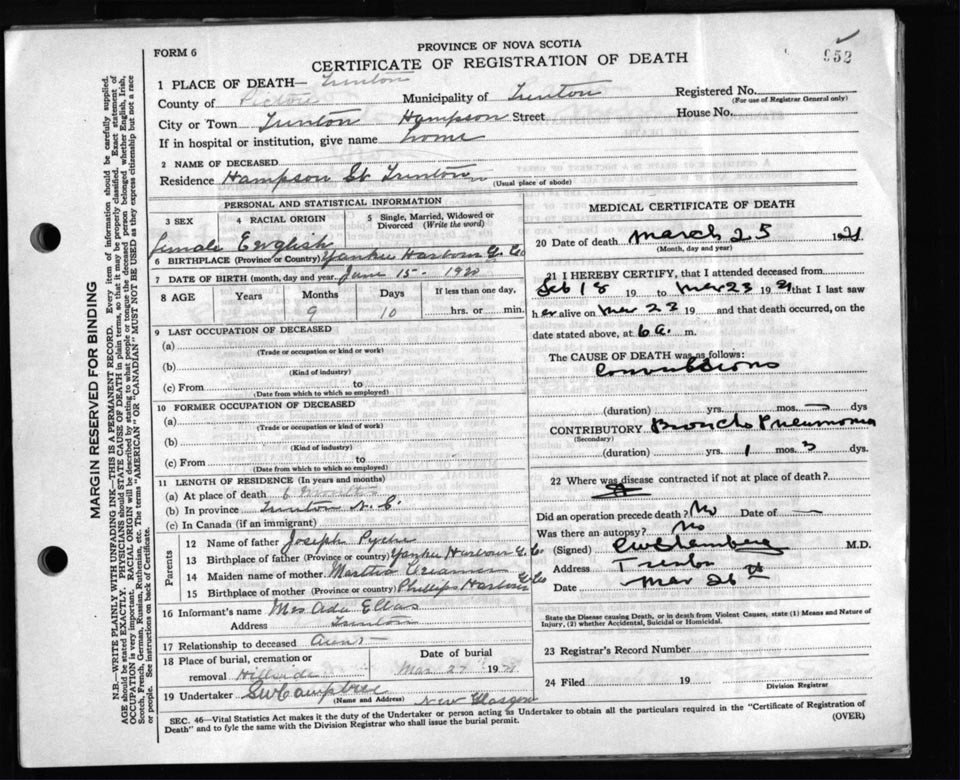 FORM 6
PROVINCE OF NOVA SCOTIA
CERTIFICATE OF REGISTRATION OF DEATH
952
1 PLACE OF DEATH— Trenton
County of Pictou Municipality of Trenton Registered No.
(For use of Registrar General only)
City or Town Trenton Hampson Street House No.
If in hospital or institution, give name home
2 NAME OF DECEASED
Residence Hampson St Trenton
(Usual place of abode)
PERSONAL AND STATISTICAL INFORMATION
3 SEX 4 RACIAL ORIGIN 5 Single, Married, Widowed or Divorced (Write the word)
female English
6 BIRTHPLACE (Province or Country) Yankee Harbour G. Co
7 DATE OF BIRTH (month, day and year) June 15 - 1920
8 AGE Years Months Days If less than one day,
9 10 hrs. or min.
9 LAST OCCUPATION OF DECEASED
(a)
(Trade or occupation or kind or work)
(b)
(Kind of industry)
(c) From to
(Date from which to which so employed)
10 FORMER OCCUPATION OF DECEASED
(a)
(Trade or occupation or kind of work)
(b)
(Kind of industry)
(c) From to
(Date from which to which so employed)
11 LENGTH OF RESIDENCE (In years and months)
(a) At place of death 6 months
(b) In province Trenton N.S.
(c) In Canada (if an immigrant)
Parents
12 Name of father Joseph
13 Birthplace of father (Province or country) Yankee Harbour G. Co
14 Maiden name of mother Martha
15 Birthplace of mother (Province or country) Phillips Harbour G Co
16 Informant's name Mrs Ada
Address Trenton
17 Relationship to deceased Aunt
18 Place of burial, cremation or Date of burial
removal Hillside Mar 27 1921
19 Undertaker New Glasgow
(Name and Address)
MEDICAL CERTIFICATE OF DEATH
20 Date of death March 25 1921
(Month, day and year)
21 I HEREBY CERTIFY, that I attended deceased from
Feb 18 19 to Mar 23 1921 that I last saw
her alive on Mar 22 19 and that death occurred, on the
date stated above, at 6 a. m.
The CAUSE OF DEATH was as follows:
Convulsions
(duration) yrs. mos. dys
CONTRIBUTORY Broncho Pneumonia
(Secondary)
(duration) yrs. 1 mos. 3 dys.
22 Where was disease contracted if not at place of death?
Did an operation precede death? No Date of —
Was there an autopsy? No
(Signed) M.D.
Address Trenton
Date Mar 26th
State the Disease causing Death, or in death from Violent Causes, state (1) Means and Nature of
Injury, (2) whether Accidental, Suicidal or Homicidal.
23 Registrar's Record Number
24 Filed 19
Division Registrar
SEC. 46—Vital Statistics Act makes it the duty of the Undertaker or person acting as Undertaker to obtain all the particulars required in the "Certificate of Registration of
Death" and to fyle the same with the Division Registrar who shall issue the burial permit.
(OVER)
MARGIN RESERVED FOR BINDING
N.B.—WRITE PLAINLY WITH UNFADING INK—THIS IS A PERMANENT RECORD. Every item of information should be carefully supplied.
AGE should be stated EXACTLY. PHYSICIANS should STATE CAUSE OF DEATH in plain terms, so that it may be properly classified. Exact statement of
OCCUPATION is very important. RACIAL ORIGIN will be described by stating to what people or tongue the deceased person belonged whether English, Irish,
Scotch, French, German, Russian, Ruthenian, etc. The terms "AMERICAN" OR "CANADIAN" MUST NOT BE USED as they express citizenship but not a race
or people. See instructions on back of Certificate.